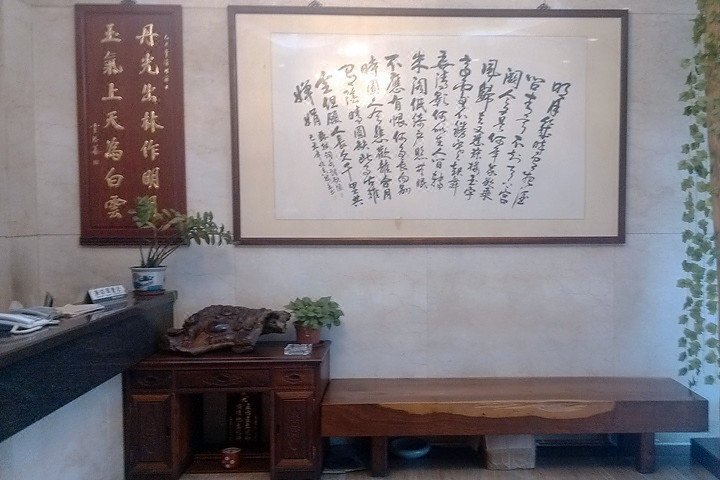 丹光出林作明月
玉氣上天為白雲
明月幾時有把酒
问青天不知天上宫
阙今夕是何年我欲乘
風歸去又恐瓊樓玉宇
高處不勝寒起舞弄
清影何似在人間轉
朱閣低綺户照無眠
不應有恨何事長向别
時圓人有悲歡離合月
有陰晴圓缺此事古難
全但願人長久千里共
嬋娟